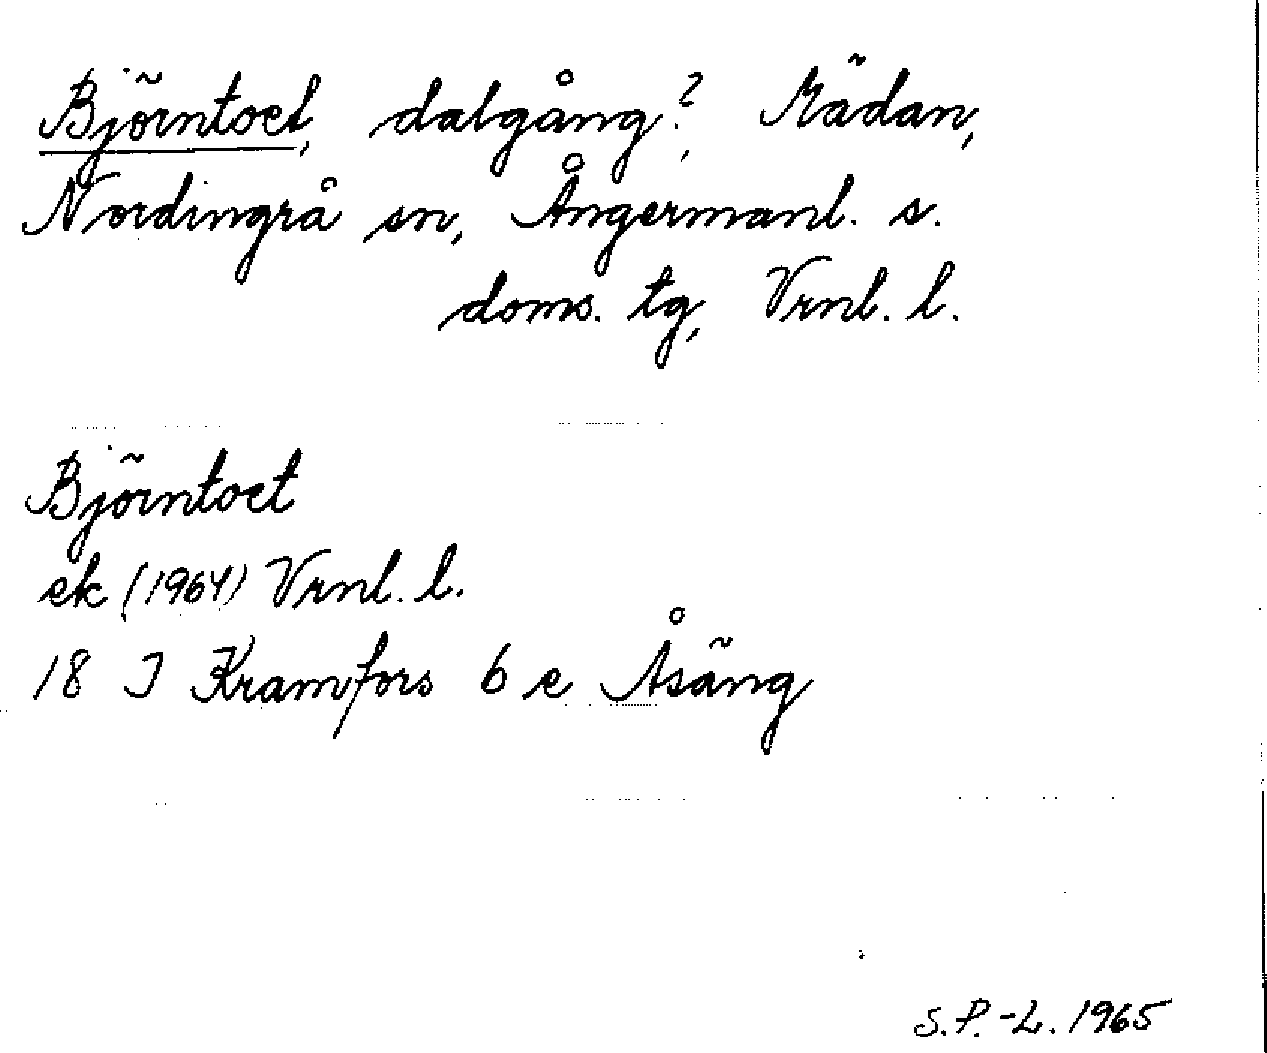 Björntoet, dalgång?, Mädan,
Nordingrå sn, Ångermanl. s.
doms. tg, Vrnl. l.
Björntoet
ek (1964) Vrnl. l.
18 I Kramfors 6 e Åsäng
S.P.-L. 1965